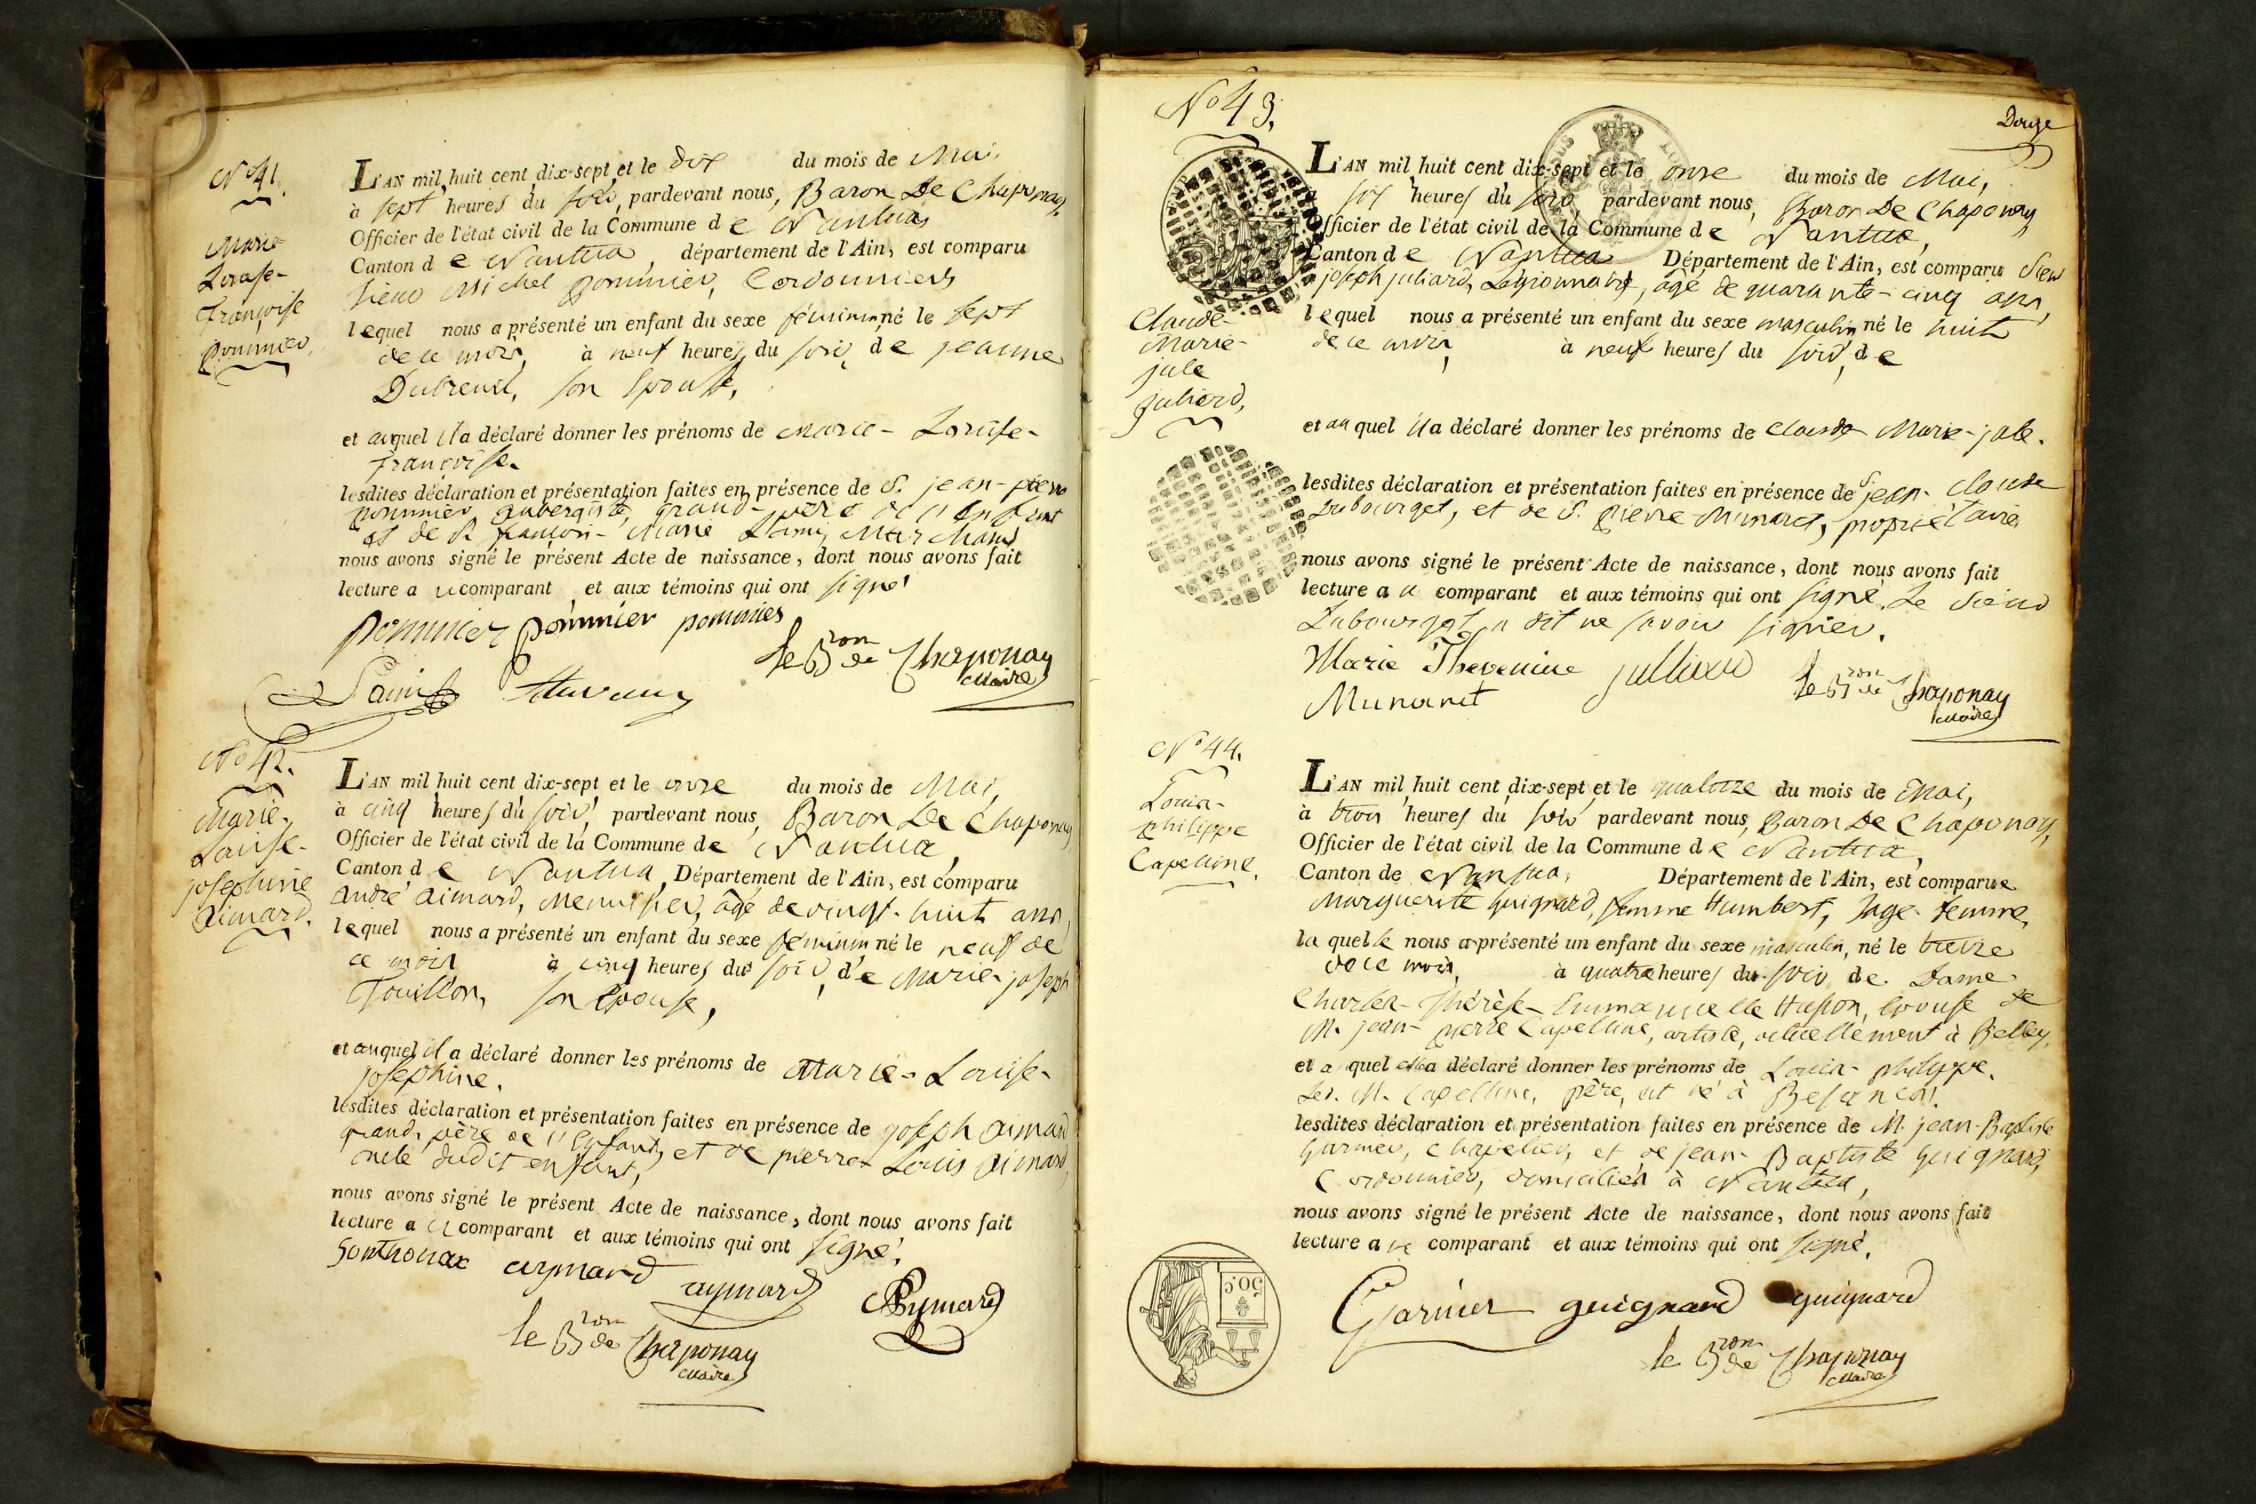 N° 41.
Marie-
Louise-
Françoise
Pommier.
L'AN mil huit cent dix-sept et le dix du mois de Mai,
à sept heures du soir, pardevant nous, Baron De Chaponay,
Officier de l'état civil de la Commune de Nantua,
Canton de Nantua, département de l'Ain, est comparu
Sieur Michel pommier, Cordonnier,
lequel nous a présenté un enfant du sexe féminin, né le sept
de ce mois, à neuf heures du soir, de jeanne
Dubreuil, son Epouse,
et auquel il a déclaré donner les prénoms de Marie-Louise-
françoise.
lesdites déclaration et présentation faites en présence de S. jean-pierre
pommier, aubergiste, grand-père de l'Enfant
et de S. françois-Marie Lami, Marchand
nous avons signé le présent Acte de naissance, dont nous avons fait
lecture au comparant et aux témoins qui ont signé
pommier pommier pommier
Lami
le Bron de Chaponay
Maire
N° 42.
Marie-
Louise-
josephine
Aimard.
L'AN mil huit cent dix-sept et le onze du mois de Mai,
à cinq heures du soir, pardevant nous, Baron De Chaponay
Officier de l'état civil de la Commune de Nantua,
Canton de Nantua, Département de l'Ain, est comparu
André Aimard, Menuisier, âgé de vingt-huit ans,
lequel nous a présenté un enfant du sexe féminin né le neuf de
ce mois à cinq heures du soir, de Marie-joseph
Touillon, son Epouse,
et auquel il a déclaré donner les prénoms de Marie-Louise-
josephine.
lesdites déclaration et présentation faites en présence de joseph Aimard
grand, père de l'Enfant, et de pierre Louis Aimard,
oncle dudit enfant,
nous avons signé le présent Acte de naissance, dont nous avons fait
lecture au comparant et aux témoins qui ont signé.
Sonthonax aymard aymard Aymard
le Bron de Chaponay
Maire
N° 43.
Douze
Claude-
Marie-
jule
juliard,
L'AN mil huit cent dix-sept et le onze du mois de Mai,
à six heures du soir pardevant nous, Baron De Chaponay
Officier de l'état civil de la Commune de Nantua,
Canton de Nantua Département de l'Ain, est comparu Sieur
joseph juliard, Légionnaire, âgé de quarante-cinq ans,
lequel nous a présenté un enfant du sexe masculin né le huit
de ce mois, à neuf heures du soir, de
et auquel il a déclaré donner les prénoms de Claude Marie-jule.
lesdites déclaration et présentation faites en présence de S. jean-Claude
Dubourget, et de S. pierre Munaret, propriétaires
nous avons signé le présent Acte de naissance, dont nous avons fait
lecture au comparant et aux témoins qui ont signé. Le Sieur
Dubourget a dit ne savoir signer.
Marie Thevenine julliard
Munaret
le Bron de Chaponay
Maire
N° 44.
Louis-
philippe
Capelline.
L'AN mil huit cent dix-sept et le quatorze du mois de Mai,
à trois heures du soir pardevant nous, Baron De Chaponay,
Officier de l'état civil de la Commune de Nantua,
Canton de Nantua, Département de l'Ain, est comparue
Marguerite Guignard, femme Humbert, sage-femme,
laquelle nous a présenté un enfant du sexe masculin, né le treize
de ce mois, à quatre heures du soir de Dame
Charles-Thérèse-Emmanuelle Husson, Epouse de
M. jean-pierre Capelline, artiste, actuellement à Belley,
et auquel elle a déclaré donner les prénoms de Louis-philippe.
Led. M. Capelline, père, est né à Besançon.
lesdites déclaration et présentation faites en présence de M. jean-Baptiste
Garnier, Chapelier, et de jean-Baptiste Guignard,
Cordonnier, domiciliés à Nantua,
nous avons signé le présent Acte de naissance, dont nous avons fait
lecture au comparant et aux témoins qui ont signé.
Garnier guignard guignard
le Bron de Chaponay
Maire
50 C